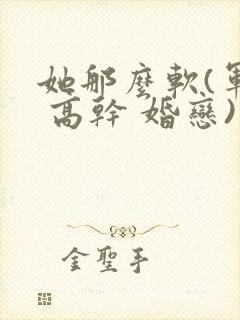 她那麼軟(軍
高幹 婚戀)
金聖手